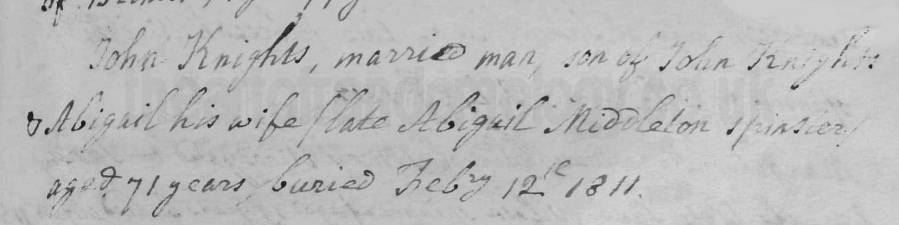 John Knights, married man, son of John Knights
& Abigail his wife (late Abigail Middleton spinster)
aged 71 years, buried Febry 12th 1811.